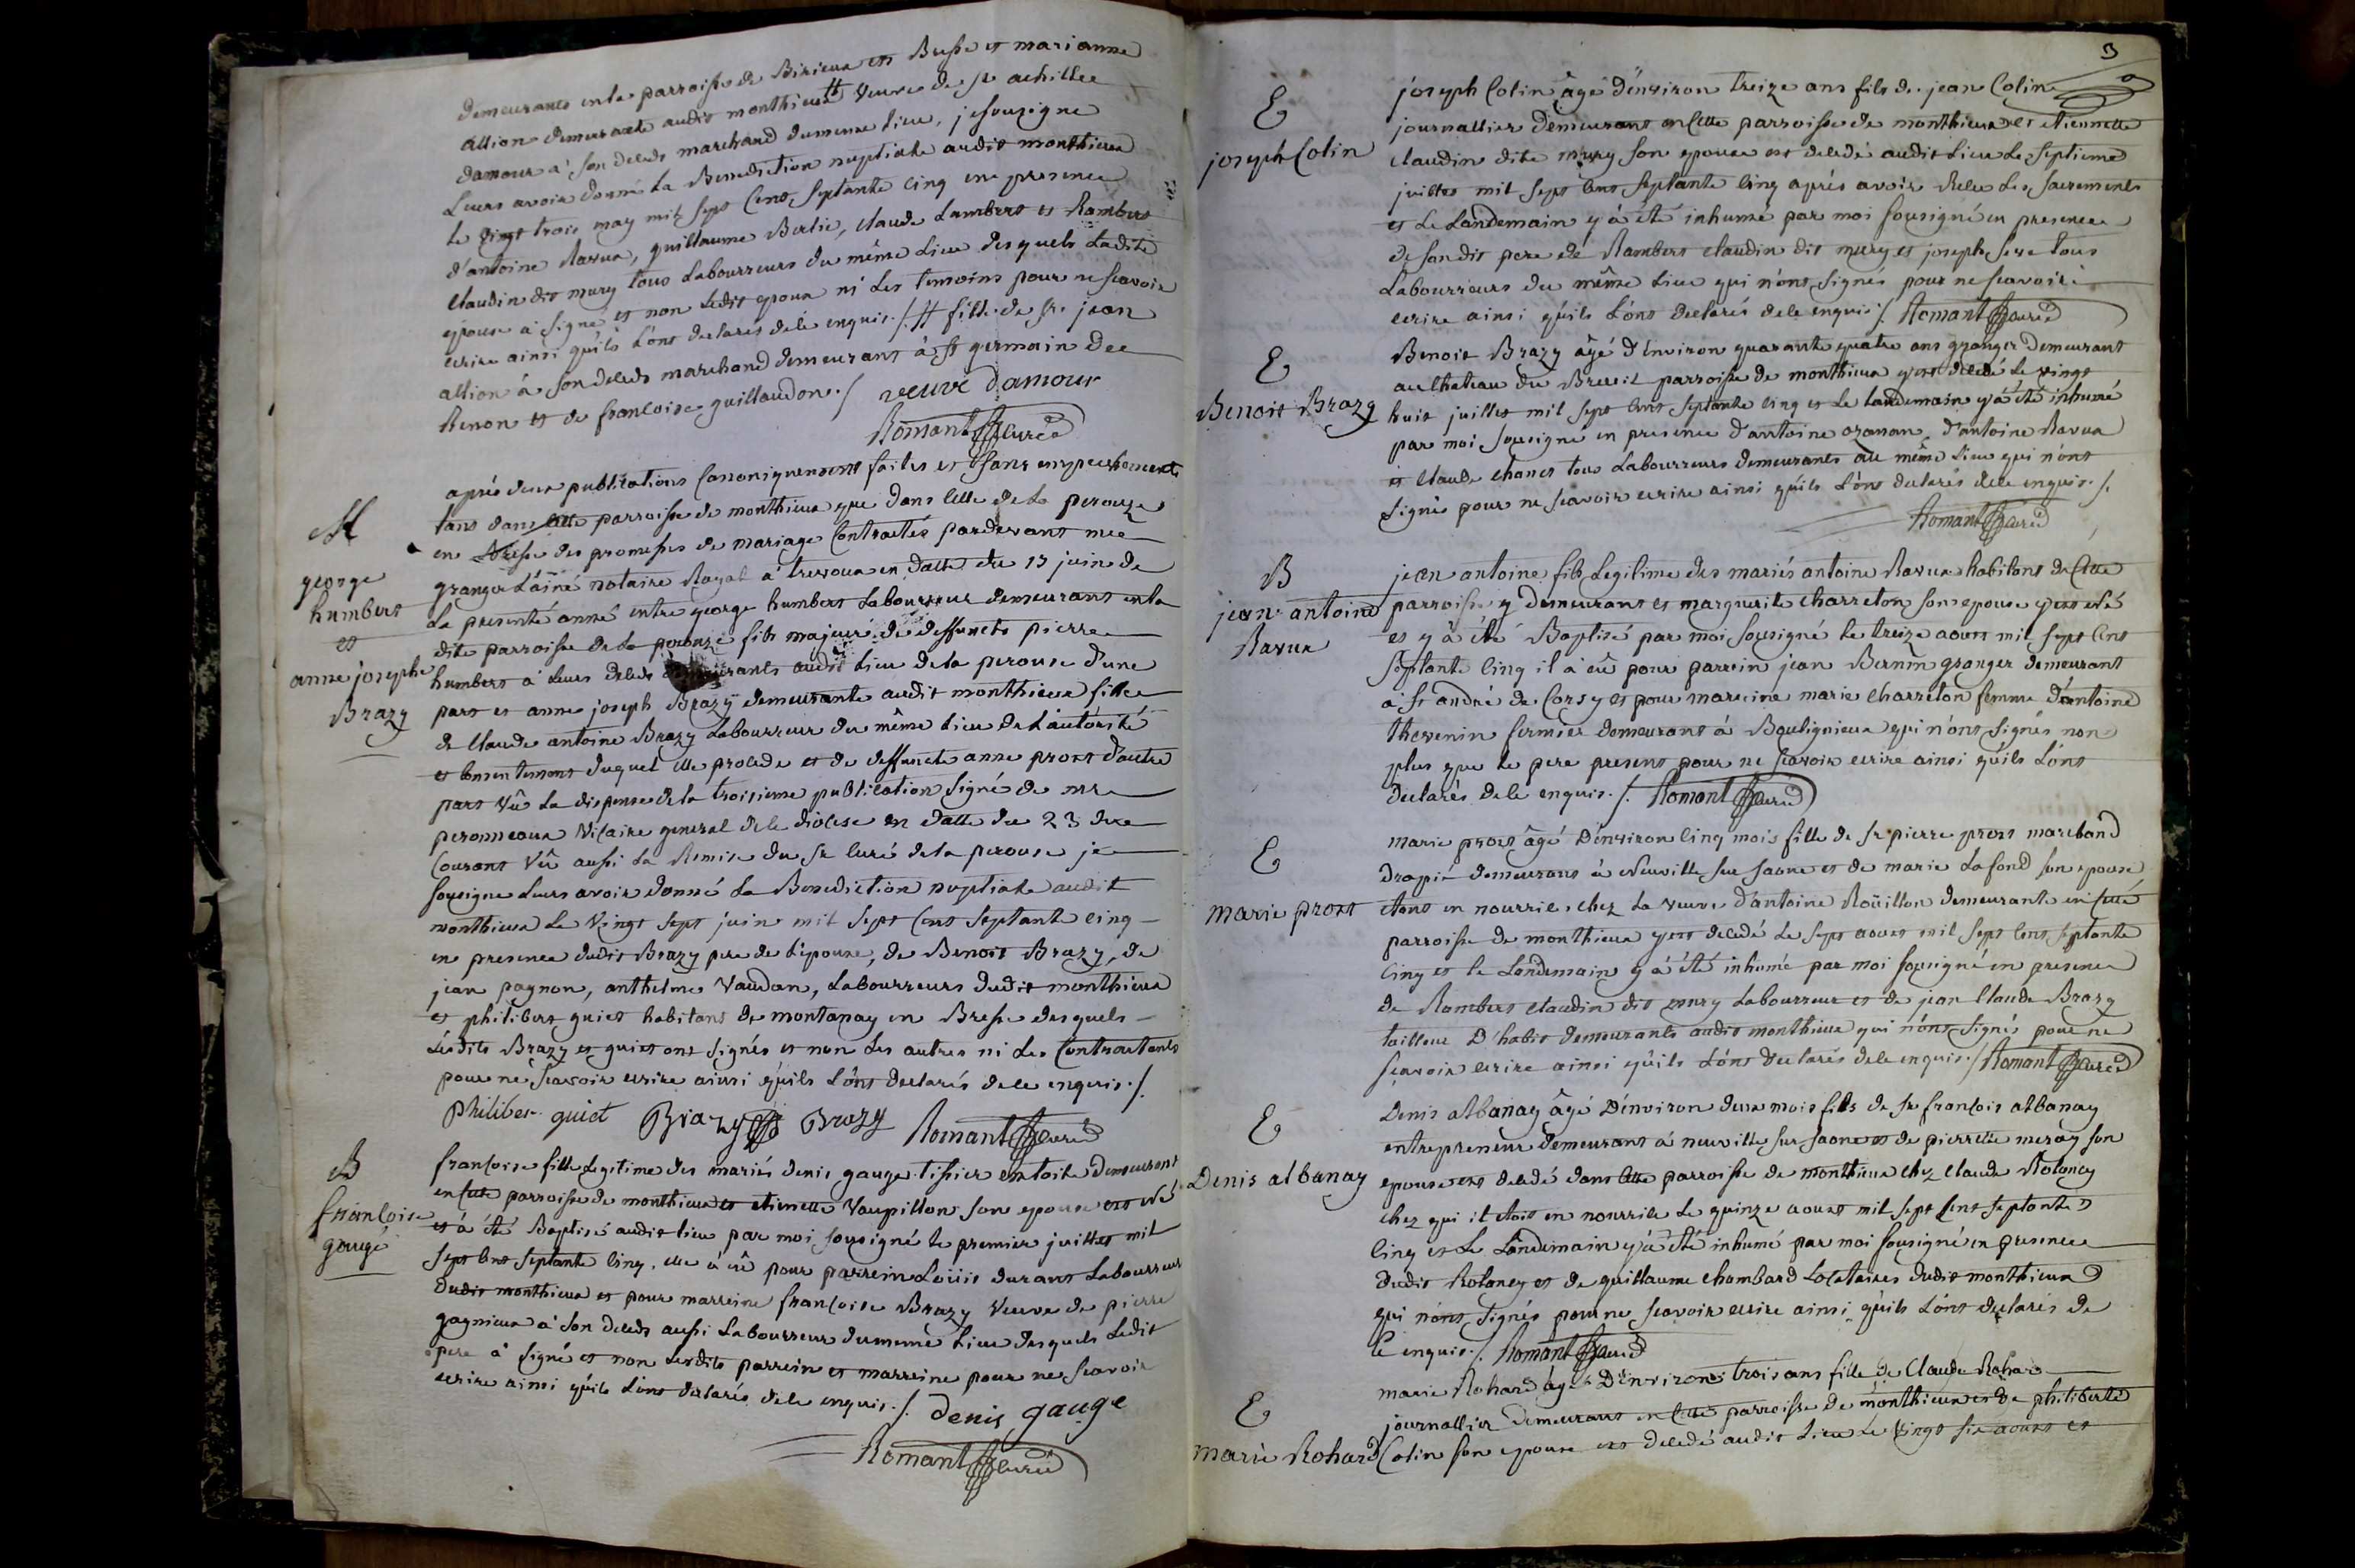 demeurants en la parroisse de Birieux en Bresse et marianne
allion demeurante audit monthieux # veuve de sr achillee
damour à son deceds marchand du meme lieu, je sousigne
Leurs avoir donné La Benediction nuptiale audit monthieux
le vingt trois may mil sept Cent septante cinq en presence
d'antoine Ravux, guillaume Berlie, claude Lambert et Rambert
claudin dit mury tous Labourreurs du même Lieu desquels Ladite
epouse à signé et non Ledit epoux ni Les temoins pour ne scavoir
ecrire ainsi qu'ils L'ont declarés de ce enquis ./. # fille de sr. jean
allion à son deceds marchand demeurant à st germain de
Renon et de francoise guillaudon ./ veuve damour
Romant curé
M
george
humbert
et
anne josephe
Brazy
aprés deux publications Canoniquement faites et sans empechement
tant dans cette parroisse de monthieux que dans celle de La perouze
en Bresse des promesses de mariage Contractés pardevant me
granger L'ainé notaire Royal à trevoux en datte du 13 juin de
La presente anné entre george humbert Labourreur demeurant en la
dite parroisse de La perouze fils majeur de deffuncts pierre
humbert à Leurs deceds demeurants audit Lieu de la perouse d'une
part et anne joseph Brazy demeurante audit monthieux fille
de Claude antoine Brazy Labourreur du même Lieu de L'autorité
et consentement duquel elle procede et de deffuncte anne prost d'autre
part Vû La dispense de la troisieme publication signé de mr
peronneaux Vicaire general de ce diocese en datte du 23 du
Courant Vû aussi La Remise du sr curé de la perouse je
sousigne Leurs avoir donné La Benediction nuptiale audit
monthieux Le Vingt sept juin mil sept Cent septante cinq
en presence dudit Brazy pere de L'epouse, de Benoit Brazy, de
jean pagnon, anthelme Vaudan, Labourreurs dudit monthieux
et philibert guiet habitant de montanay en Bresse desquels
Lesdits Brazy et guiet ont signés et non Les autres ni Les Contractants
pour ne scavoir ecrire ainsi qu'ils L'ont declarés de ce enquis ./.
philiber guiet Brazy Brazy Romant curé
B
francoise
gaugé
francoise fille Legitime des mariés denis gauge tissier en toile demeurant
en cette parroisse de monthieux et etiennette Vaupillon son epouse est né
et à été Baptisé audit lieu par moi sousigné le premier juillet mil
sept cent septante cinq. elle à eû pour parrein Loüis durant Labourreur
dudit monthieux et pour marreine francoise Brazy Veuve de pierre
gagnieux à son deceds aussi Labourreur du meme Lieu desquels Ledit
pere à signé et non Lesdits parrein et marreine pour ne scavoir
ecrire ainsi qu'ils L'ont declarés de ce enquis ./. denis gauge
Romant curé
3
E
joseph Colin
joseph Colin âgé d'environ treize ans fils de jean Colin
journallier demeurant en Cette parroisse de monthieux et etiennette
claudin dite mury son epouse est decedé audit Lieu Le septieme
juillet mil sept Cent septante cinq aprés avoir Recu Les sacrements
et Le Landemain y à été inhumé par moi sousigné en presence
de son dit pere de Rambert claudin dit mury et joseph sere tous
Labourreurs du même Lieu qui n'ont signés pour ne scavoir
ecrire ainsi qu'ils L'ont declarés de ce enquis ./. Romant curé
E
Benoit Brazy
Benoit Brazy âgé d'environ quarante quatre ans granger demeurant
au chateau du Breuil parroisse de monthieux y est decedé Le vingt
huit juillet mil sept Cent septante cinq et Le Landemain y à été inhumé
par moi sousigné en presence d'antoine ozanon, d'antoine Ravux
et claude chanet tous Labourreurs demeurants au même Lieu qui n'ont
signés pour ne scavoir ecrire ainsi qu'ils L'ont declarés de ce enquis ./.
Romant curé
B
jean antoine
Ravux
jean antoine fils Legitime des mariés antoine Ravux habitant de Cette
parroisse y demeurant et marguerite charreton son epouse y est né
et y à été Baptisé par moi sousigné le treize aoust mil sept Cent
septante cinq il à eû pour parrein jean Bernin granger demeurant
à st andré de Corsy et pour marreine marie charreton femme d'antoine
thevenin fermier demeurant à Bouligneux qui n'ont signés non
plus que le pere present pour ne scavoir ecrire ainsi qu'ils L'ont
declarés de ce enquis ./. Romant curé
E
marie prost
marie prost âgé d'environ cinq mois fille de sr pierre prost marchand
drapié demeurant à Neuville sur saone et de marie Lafond son epouse
etant en nourrice chez La veuve d'antoine Roüillon demeurante en cette
parroisse de monthieux y est decedé Le sept aoust mil sept Cent septante
cinq et le Landemain y à été inhumé par moi sousigné en presence
de Rambert claudin dit mury Labourreur et de jean claude Brazy
tailleur D'habit demeurants audit monthieux qui n'ont signés pour ne
scavoir ecrire ainsi qu'ils L'ont declarés de ce enquis ./ Romant curé
E
Denis albanay
Denis albanay âgé D'environ deux mois fils de sr francois albanay
entrepreneur demeurant à neuville sur saone et de pierrette meray son
epouse est decedé dans cette parroisse de monthieux chez claude Rolancy
chez qui il etoit en nourrice Le quinze aoust mil sept Cent septante
cinq et Le Landemain y à été inhumé par moi sousigné en presence
dudit Rolancy et de guillaume chambard Locataires dudit monthieux
qui n'ont signés pour ne scavoir ecrire ainsi qu'ils L'ont declarés de
ce enquis ./. Romant curé
E
marie Rohard
marie Rohard âgé D'environ trois ans fille de Claude Rohard
journallier demeurant en Cette parroisse de monthieux et de philiberte
Colin son epouse est decedé audit Lieu Le Vingt six aoust et